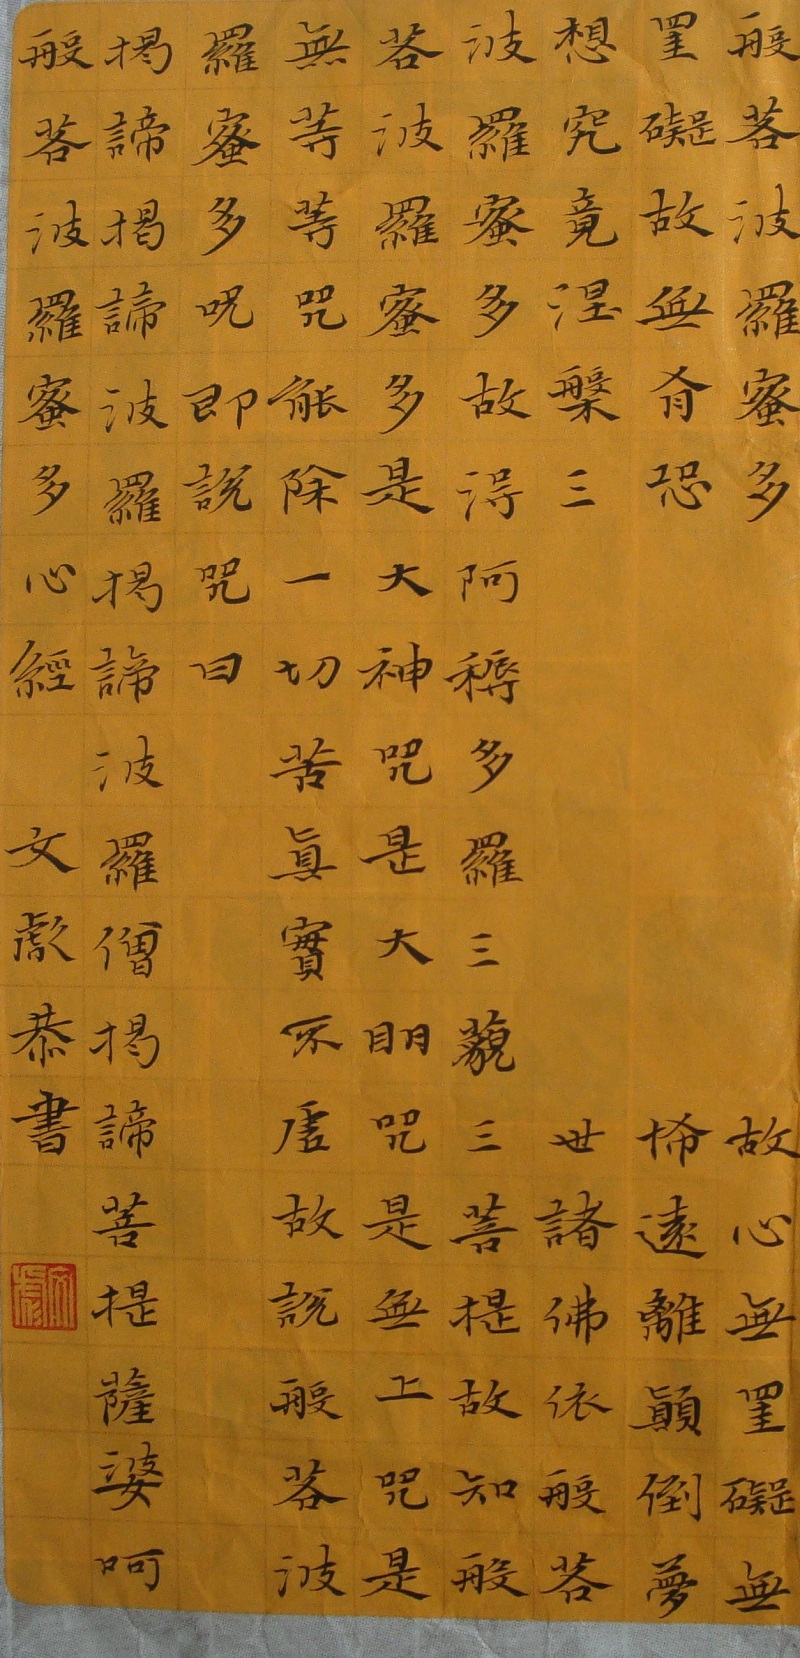 般若波羅蜜多 故心無罣礙無
罣礙故無有恐 怖遠離顛倒夢
想究竟涅槃三 世諸佛依般若
波羅蜜多故得阿耨多羅三藐三菩提故知般
若波羅蜜多是大神咒是大明咒是無上咒是
無等等咒能除一切苦眞實不虛故說般若波
羅蜜多呪即說咒曰
揭諦揭諦波羅揭諦波羅僧揭諦菩提薩婆呵
般若波羅蜜多心經 文彪恭書